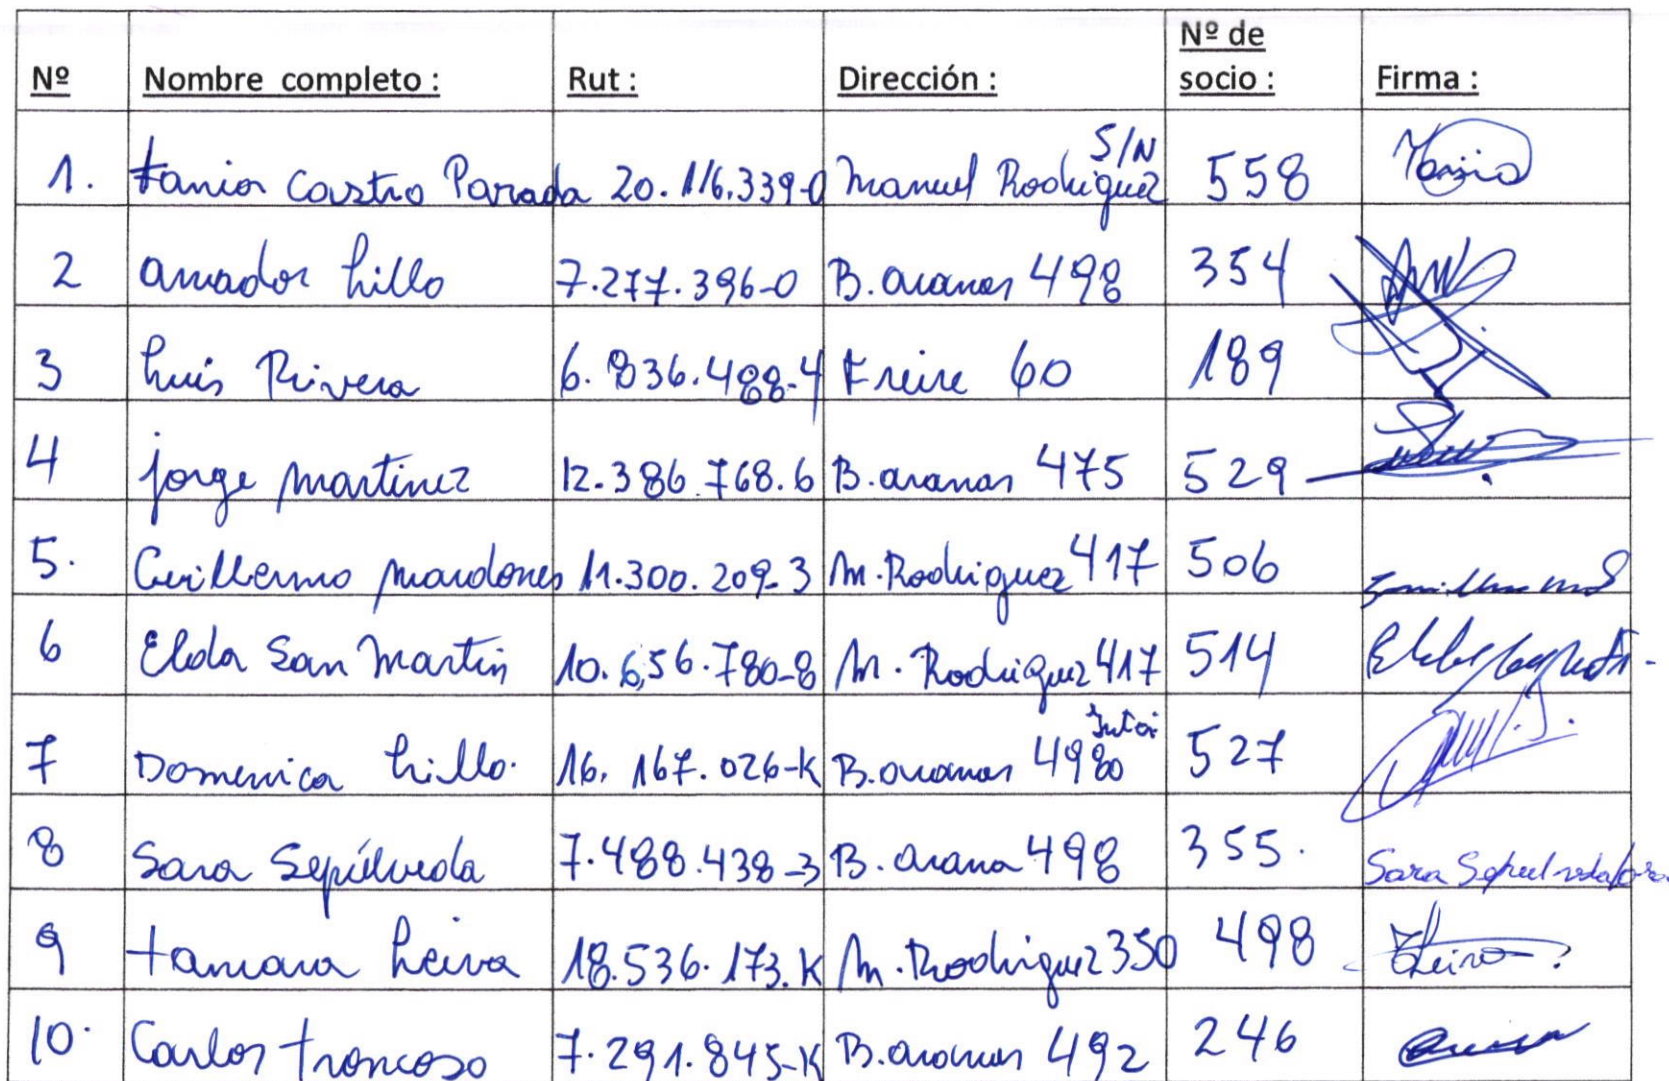 Nº Nombre completo : Rut : Dirección : Nº de socio : Firma :
1. tania Castro Parada 20.116.339-0 Manuel Rodriguez S/N 558 Tania
2 amador Lillo 7.277.396-0 B. aranas 498 354
3 Luis Rivera 6.836.488-4 Freire 60 189
4 jorge Martinez 12.386.768.6 B. aranas 475 529
5. Guillermo Mardones 11.300.209-3 M. Rodriguez 417 506
6 Elda San Martin 10.656.780-8 M. Rodriguez 417 514
7 Domenica Lillo. 16.167.026-K B. aranas 498 527
8 Sara Sepúlveda 7.488.438-3 B. arana 498 355. Sara Sepulveda
9 tamara Leiva 18.536.173.K M. Rodriguez 350 498 TLeiva
10. Carlos troncoso 7.291.845-K B. aranas 492 246